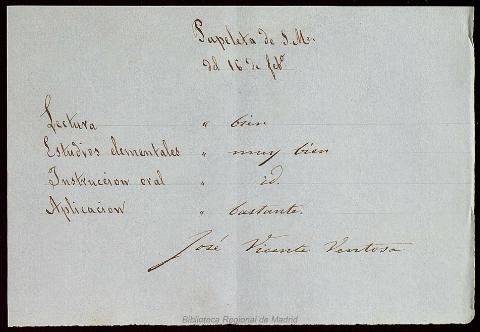 Papeleta de S. M.
del 16 de feb.º
Lectura " bien
Estudios elementales " muy bien
Instruccion oral " id.
Aplicacion " bastante.
José Vicente Ventosa
Biblioteca Regional de Madrid